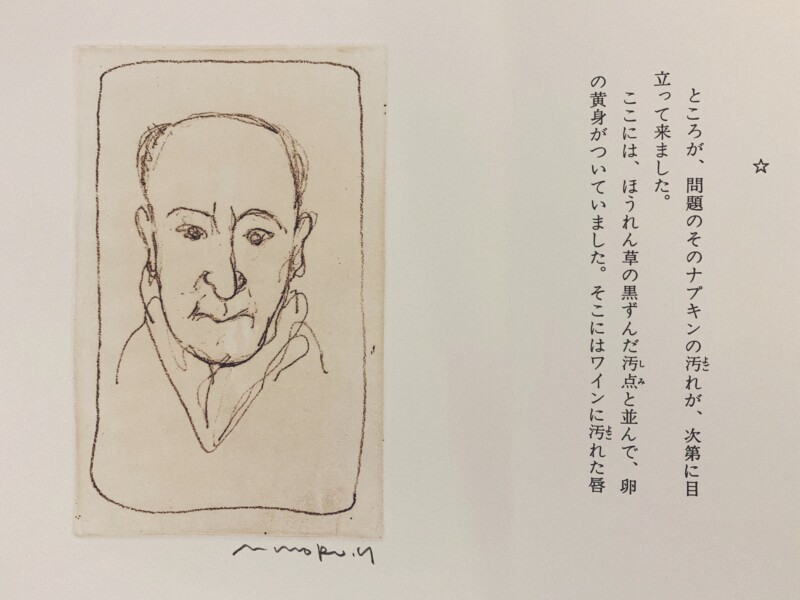 ☆
ところが、問題のそのナプキンの汚れが、次第に目
立って来ました。
ここには、ほうれん草の黒ずんだ汚点と並んで、卵
の黄身がついていました。そこにはワインに汚れた唇